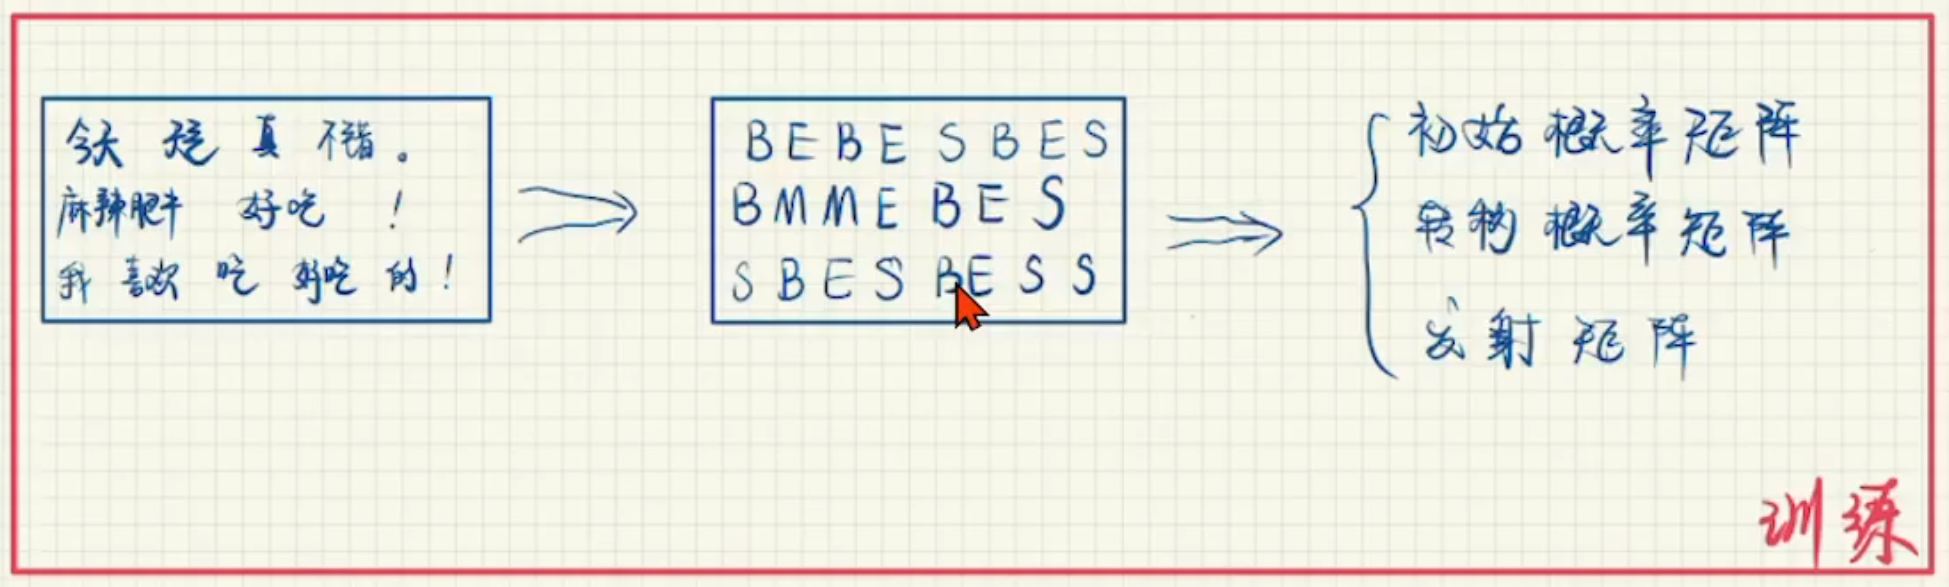 今天 天气 真 不错。
麻辣肥牛 好吃 !
我 喜欢 吃 好吃 的!
B E B E S B E S
B M M E B E S
S B E S B E S S
初始概率矩阵
转移概率矩阵
发射矩阵
训练